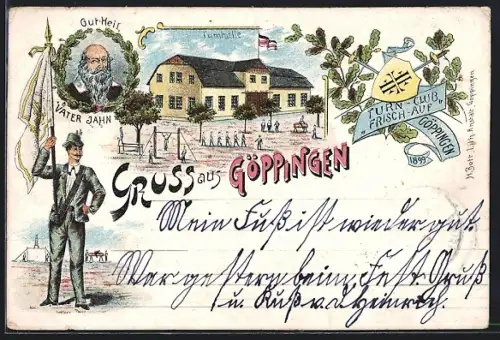 Gut-Heil
VATER JAHN
Turnhalle
TURN-CLUB
"FRISCH-AUF"
GÖPPINGEN
1899
GRUSS aus GÖPPINGEN
Mein Fuß ist wieder gut.
War gestern beim Fest. Gruß
u. Kuß v. Heinrich.